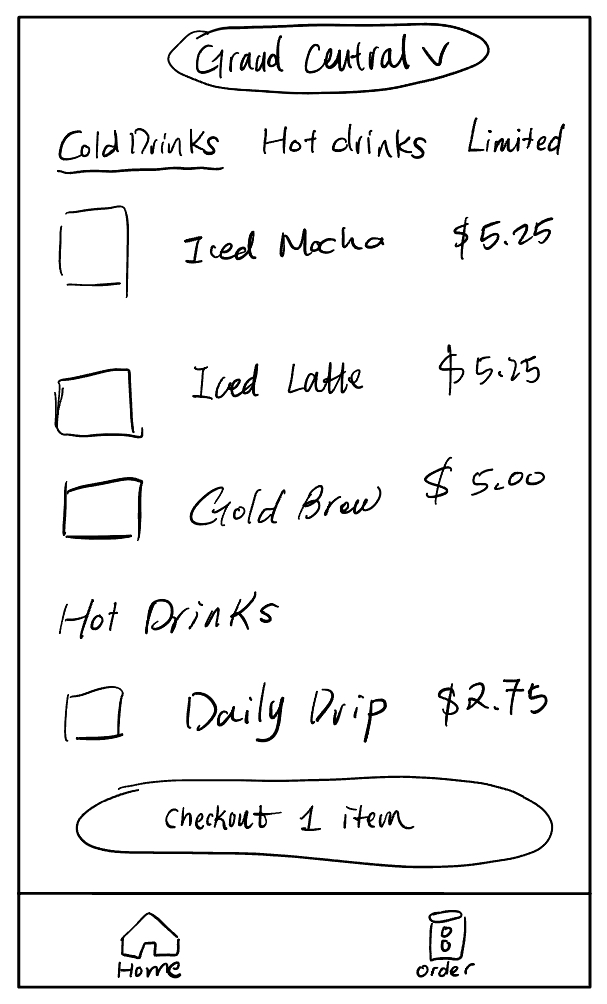 Grand Central V
Cold Drinks Hot drinks Limited
Iced Mocha $5.25
Iced Latte $5.25
Gold Brew $5.00
Hot Drinks
Daily Drip $2.75
Checkout 1 item
Home order